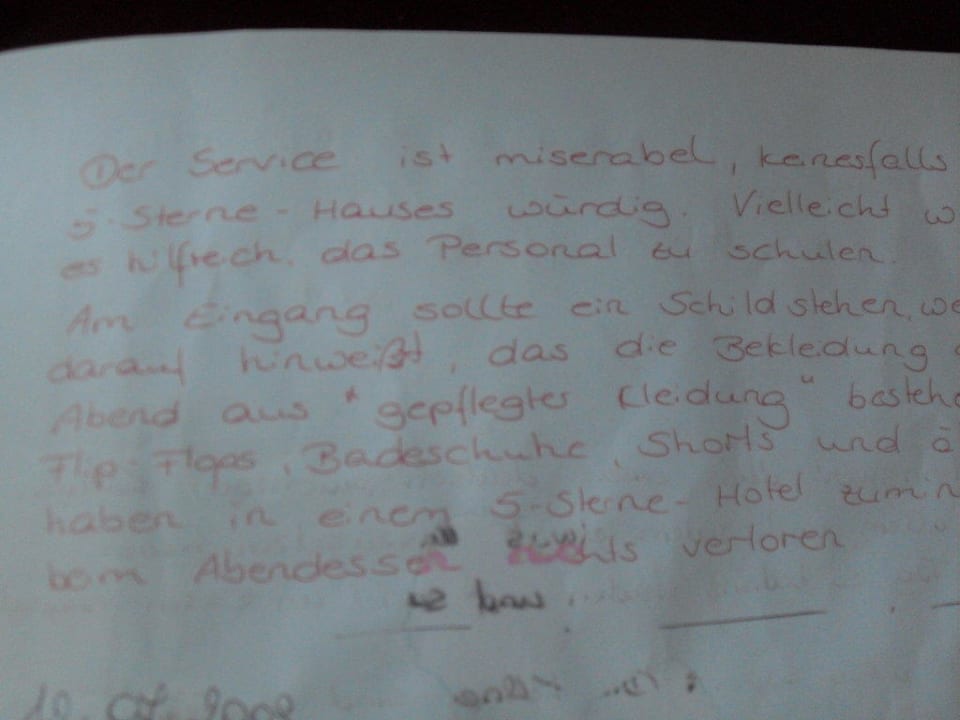 Der Service ist miserabel, keinesfalls
5-Sterne-Hauses würdig. Vielleicht
es hilfrech. das Personal zu schulen.
Am Eingang sollte ein Schild stehen,
darauf hinweißt, das die Bekleidung
Abend aus "gepflegter Kleidung"
Flip-Flops, Badeschuhe, Shorts und
haben in einem 5-Sterne-Hotel
beim Abendessen nichts verloren